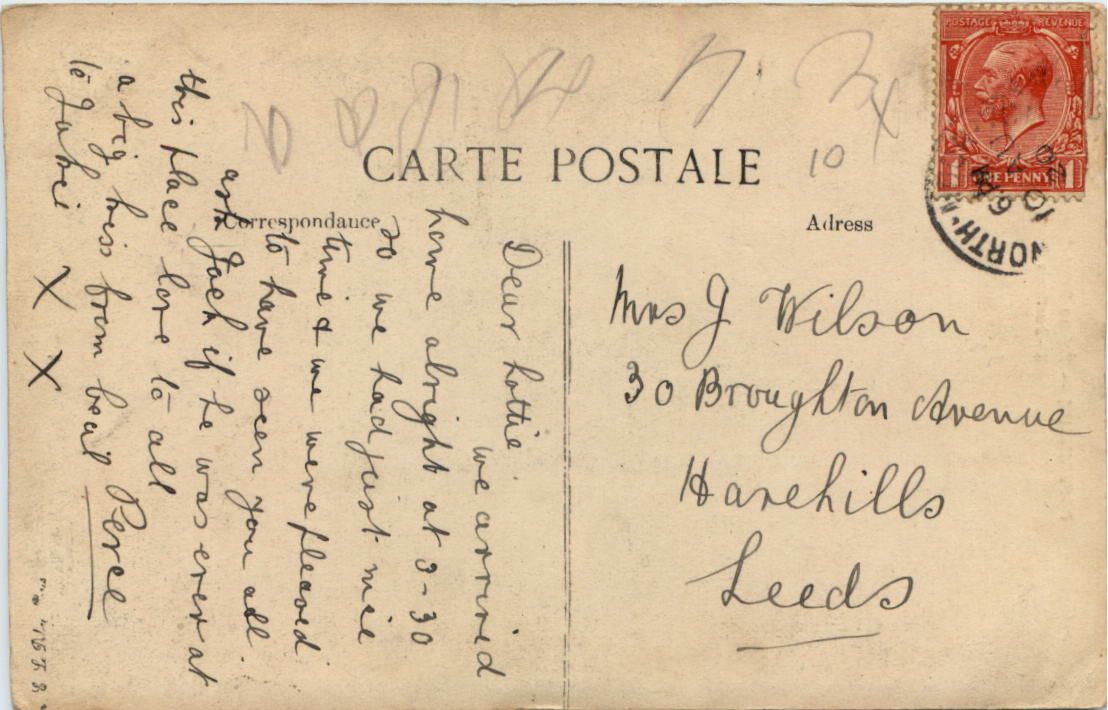 CARTE POSTALE
Correspondance
Adress
POSTAGE REVENUE
1 ONE PENNY 1
NORTH
6 PM
10
20
10
X
Dear Lottie
we arrived
home alright at 9-30
so we had just nice
time & we were pleased
to have seen you all.
ask Jack if he was ever at
this place love to all
a big kiss from Cecil Perce
to Jackie X X
Mrs J Wilson
30 Broughton Avenue
Harehills
Leeds